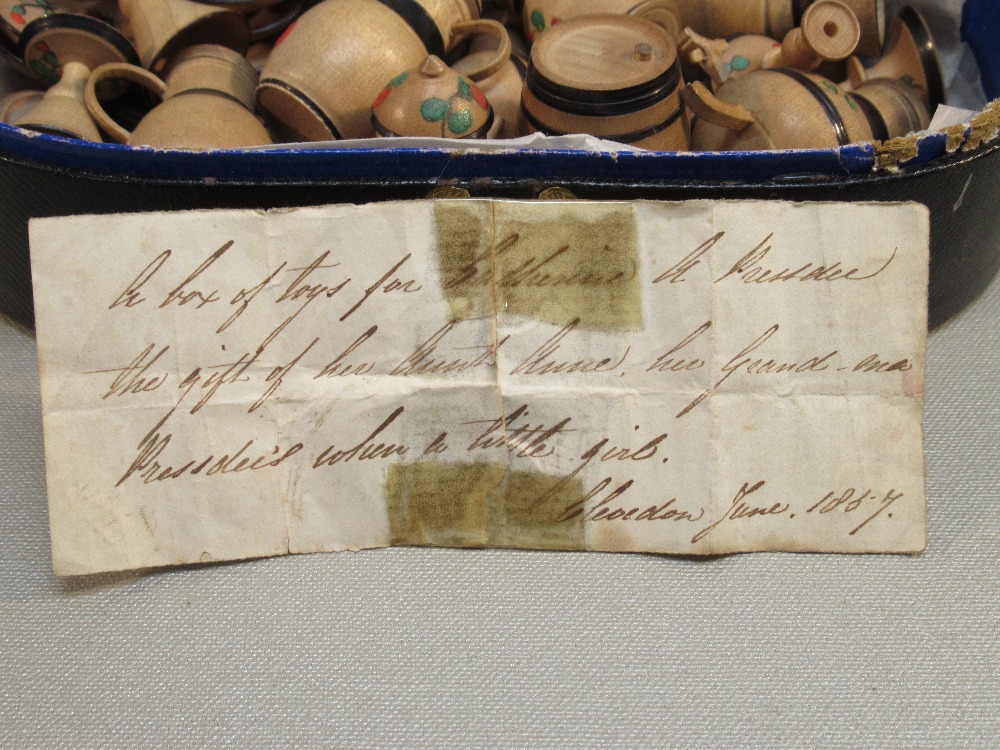 A box of toys for Catherine A Pressdee
the gift of her Aunt Anne, her Grand-ma
Pressdee's when a little girl.
Clevedon June. 1857.